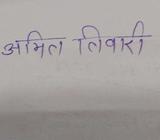 अमित तिवारी